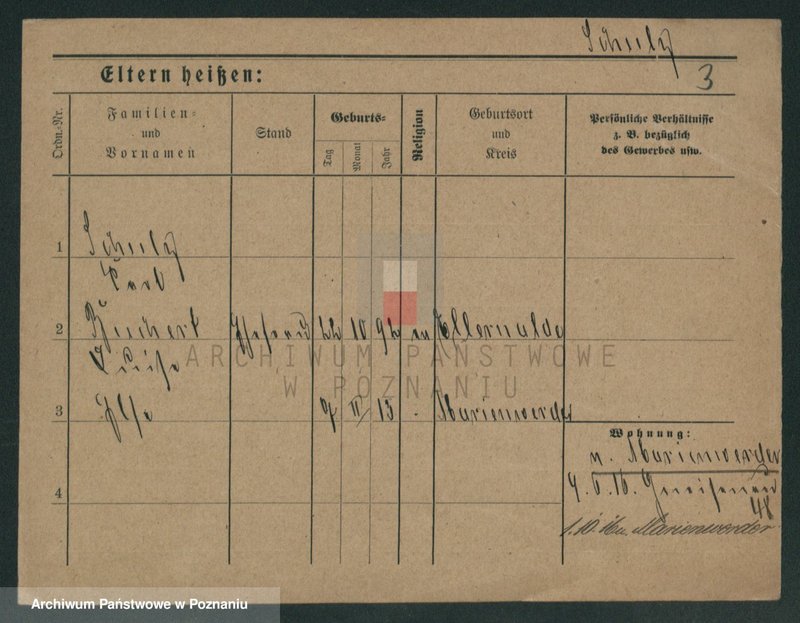 Schulz
3
Eltern heißen:
Ordn.-Nr.
Familien-
und
Vornamen
Stand
Geburts-
Tag
Monat
Jahr
Religion
Geburtsort
und
Kreis
Persönliche Verhältnisse
z. B. bezüglich
des Gewerbes usw.
1 Schulz
2 22 10 92 ev Ellerwalde
Luise
3 Ilse 9 II 13 Marienwerder
4
Wohnung:
n. Marienwerder
Gneisenau
48
1.10. Marienwerder
ARCHIWUM PAŃSTWOWE
W POZNANIU
Archiwum Państwowe w Poznaniu